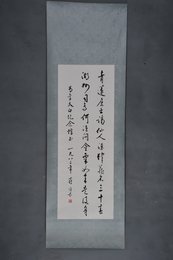 青蓮居士謫仙人酒肆藏名三十春
湖州司馬何須問金粟如來是後身
太白纪念馆 一九八三年